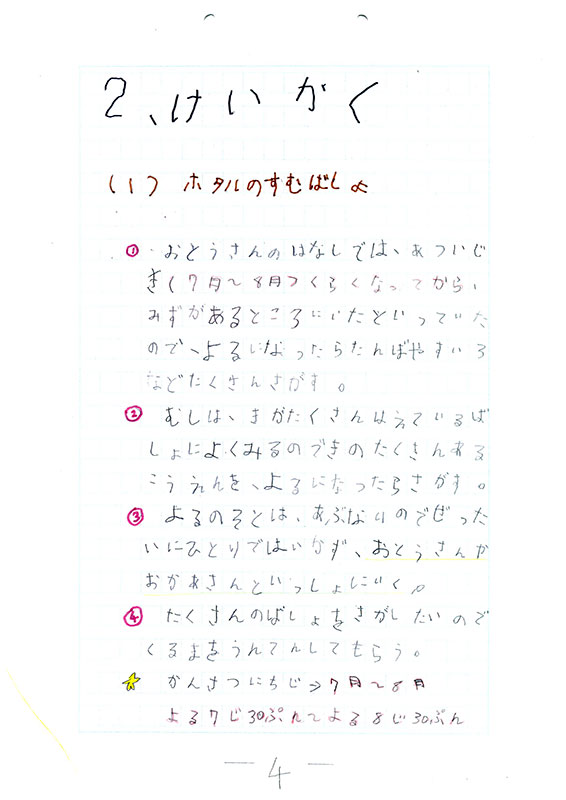 2、けいかく
(1) ホタルのすむばしょ
① おとうさんのはなしでは、あついじ
き(7月〜8月)くらくなってから、
みずがあるところにいたといっていた
ので、よるになったらたんぼやすいろ
などたくさんさがす。
② むしは、きがたくさんはえているば
しょによくみるのできのたくさんある
こうえんを、よるになったらさがす。
③ よるのそとは、あぶないのでぜった
いにひとりではいかず、おとうさんか
おかあさんといっしょにいく。
④ たくさんのばしょをさがしたいので
くるまをうんてんしてもらう。
かんさつにちじ⇒7月〜8月
よる7じ30ぷん〜よる8じ30ぷん
— 4 —